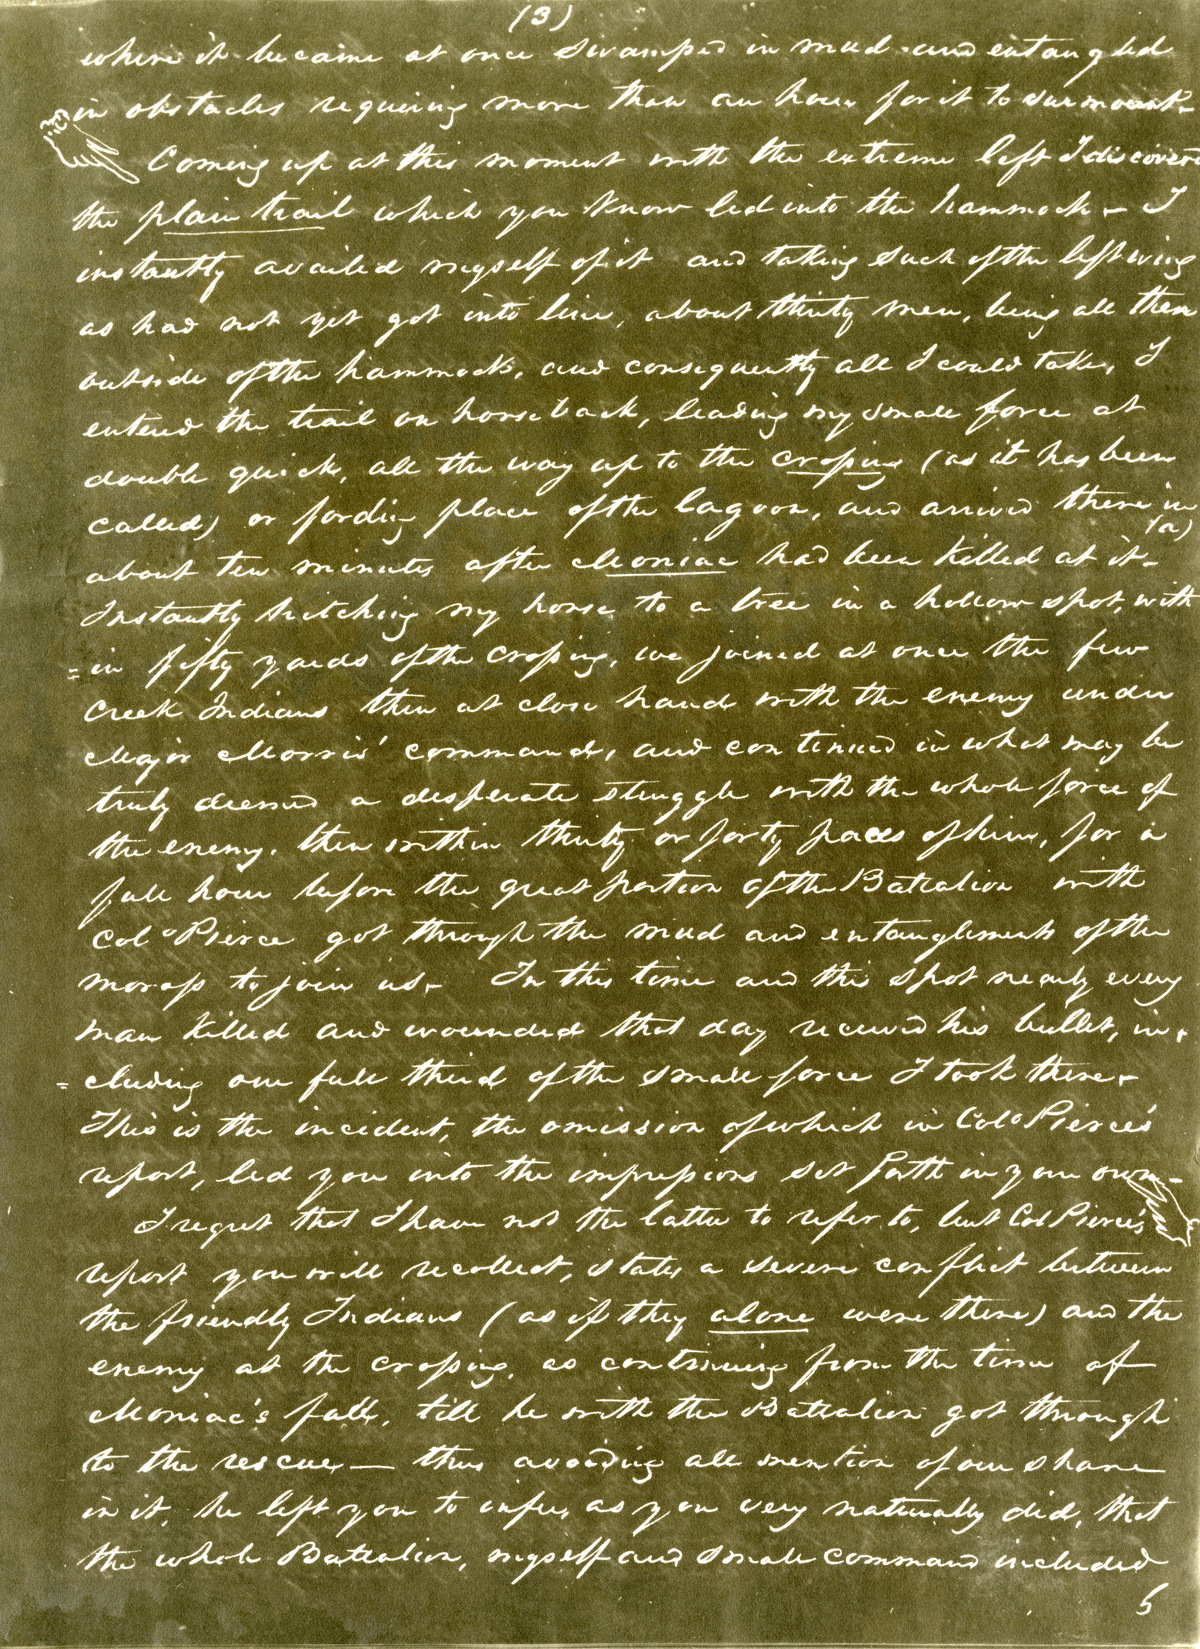 (3)
where it became at once swamped in mud and entangled
in obstacles requiring more than an hour for it to surmount-
Coming up at this moment with the extreme left I discovered
the plain trail which you know led into the hammock - I
instantly availed myself of it and taking such of the left wing
as had not yet got into line, about thirty men, being all then
outside of the hammock, and consequently all I could take, I
entered the trail on horseback, leading my small force at
double quick, all the way up to the crossing (as it has been
called) or fording place of the lagoon, and arrived there in
(a)
about ten minutes after Moniac had been killed at it -
Instantly hitching my horse to a tree in a hollow spot, with
=in fifty yards of the crossing, we joined at once the few
Creek Indians then at close hand with the enemy under
Major Morris' command, and continued in what may be
truly deemed a desperate struggle with the whole force of
the enemy, then within thirty or forty paces of him, for a
full hour before the great portion of the Battalion with
Colo Pierce got through the mud and entanglements of the
morass to join us - In this time and this spot nearly every
man killed and wounded that day received his bullet, in-
=cluding one full third of the small force I took there -
This is the incident, the omission of which in Colo Pierce's
report, led you into the impressions set forth in your own -
I regret that I have not the latter to refer to, but Col Pierce's
report you will recollect, states a severe conflict between
the friendly Indians (as if they alone were there) and the
enemy at the crossing, as continuing from the time of
Moniac's fall, till he with the Battalion got through
to the rescue - thus avoiding all mention of our share
in it, he left you to infer, as you very naturally did, that
the whole Battalion, myself and small command included
5